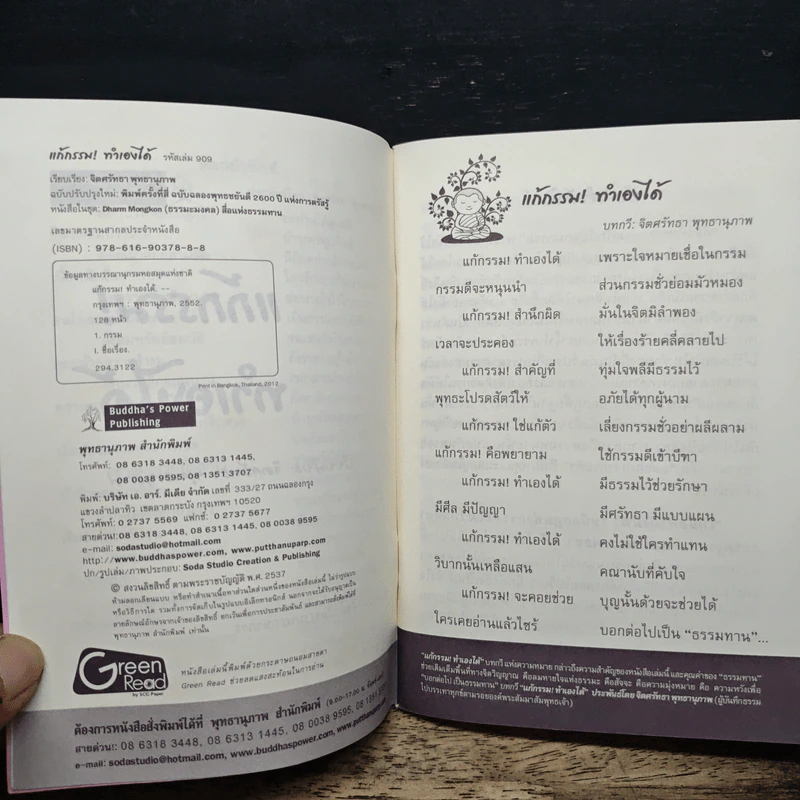 แก้กรรม! ทำเองได้ รหัสเล่ม 909
เรียบเรียง: จิตศรัทธา พุทธานุภาพ
ฉบับปรับปรุงใหม่: พิมพ์ครั้งที่สี่ ฉบับฉลองพุทธชยันตี 2600 ปี แห่งการตรัสรู้
หนังสือในชุด: Dharm Mongkon (ธรรมะมงคล) สื่อแห่งธรรมทาน
เลขมาตรฐานสากลประจำหนังสือ
(ISBN) : 978-616-90378-8-8
ข้อมูลทางบรรณานุกรมหอสมุดแห่งชาติ
แก้กรรม! ทำเองได้. --
กรุงเทพฯ : พุทธานุภาพ, 2552.
128 หน้า
1. กรรม
I. ชื่อเรื่อง.
294.3122
Print in Bangkok, Thailand, 2012
Buddha's Power
Publishing
พุทธานุภาพ สำนักพิมพ์
โทรศัพท์: 08 6318 3448, 08 6313 1445,
08 0038 9595, 08 1351 3707
พิมพ์: บริษัท เอ. อาร์. มีเดีย จำกัด เลขที่ 333/27 ถนนฉลองกรุง
แขวงลำปลาทิว เขตลาดกระบัง กรุงเทพฯ 10520
โทรศัพท์: 0 2737 5569 แฟกซ์: 0 2737 5677
สายด่วน: 08 6318 3448, 08 6313 1445, 08 0038 9595
e-mail: sodastudio@hotmail.com
http://www.buddhaspower.com, www.putthanuparp.com
ปก/รูปเล่ม/ภาพประกอบ: Soda Studio Creation & Publishing
© สงวนลิขสิทธิ์ ตามพระราชบัญญัติ พ.ศ. 2537
ห้ามลอกเลียนแบบ หรือทำสำเนาเนื้อหาส่วนใดส่วนหนึ่งของหนังสือเล่มนี้ ไม่ว่ารูปแบบ
หรือวิธีการใด รวมทั้งการจัดเก็บในรูปแบบอิเล็กทรอนิกส์ นอกจากจะได้รับอนุญาตเป็น
ลายลักษณ์อักษรจากเจ้าของลิขสิทธิ์ ยกเว้นเพื่อการประชาสัมพันธ์ และสามารถสั่งพิมพ์ได้ที่
พุทธานุภาพ สำนักพิมพ์ เท่านั้น
Green
Read
by SCG Paper
หนังสือเล่มนี้พิมพ์ด้วยกระดาษถนอมสายตา
Green Read ช่วยลดแสงสะท้อนในการอ่าน
ต้องการหนังสือสั่งพิมพ์ได้ที่ พุทธานุภาพ สำนักพิมพ์
สายด่วน!: 08 6318 3448, 08 6313 1445, 08 0038 9595, 08 1351
e-mail: sodastudio@hotmail.com, www.buddhaspower.com, www.putthanuparp
แก้กรรม! ทำเองได้
บทกวี: จิตศรัทธา พุทธานุภาพ
แก้กรรม! ทำเองได้ เพราะใจหมายเชื่อในกรรม
กรรมดีจะหนุนนำ ส่วนกรรมชั่วย่อมมัวหมอง
แก้กรรม! สำนึกผิด มั่นในจิตมิลำพอง
เวลาจะประคอง ให้เรื่องร้ายคลี่คลายไป
แก้กรรม! สำคัญที่ ทุ่มใจพลีมีธรรมไว้
พุทธะโปรดสัตว์ให้ อภัยได้ทุกผู้นาม
แก้กรรม! ใช่แก้ตัว เลี่ยงกรรมชั่วอย่าผลีผลาม
แก้กรรม! คือพยายาม ใช้กรรมดีเข้าบีฑา
แก้กรรม! ทำเองได้ มีธรรมไว้ช่วยรักษา
มีศีล มีปัญญา มีศรัทธา มีแบบแผน
แก้กรรม! ทำเองได้ คงไม่ใช้ใครทำแทน
วิบากนั้นเหลือแสน คณานับที่คับใจ
แก้กรรม! จะคอยช่วย บุญนั้นด้วยจะช่วยได้
ใครเคยอ่านแล้วไซร้ บอกต่อไปเป็น “ธรรมทาน”...
"แก้กรรม! ทำเองได้" บทกวี แห่งความหมาย กล่าวถึงความสำคัญของหนังสือเล่มนี้และคุณค่าของ "ธรรมทาน"
ช่วยเติมเต็มพื้นที่ทางจิตวิญญาณ คือลมหายใจแห่งธรรมะ คือสัจจะ คือความมุ่งหมาย คือ ความหวังเพื่อ
"บอกต่อไป เป็นธรรมทาน" บทกวี "แก้กรรม! ทำเองได้" ประพันธ์โดย จิตศรัทธา พุทธานุภาพ (ผู้บันทึกธรรม
โปรดเราเหล่าทุกข์ตามรอยองค์พระสัมมาสัมพุทธเจ้า)